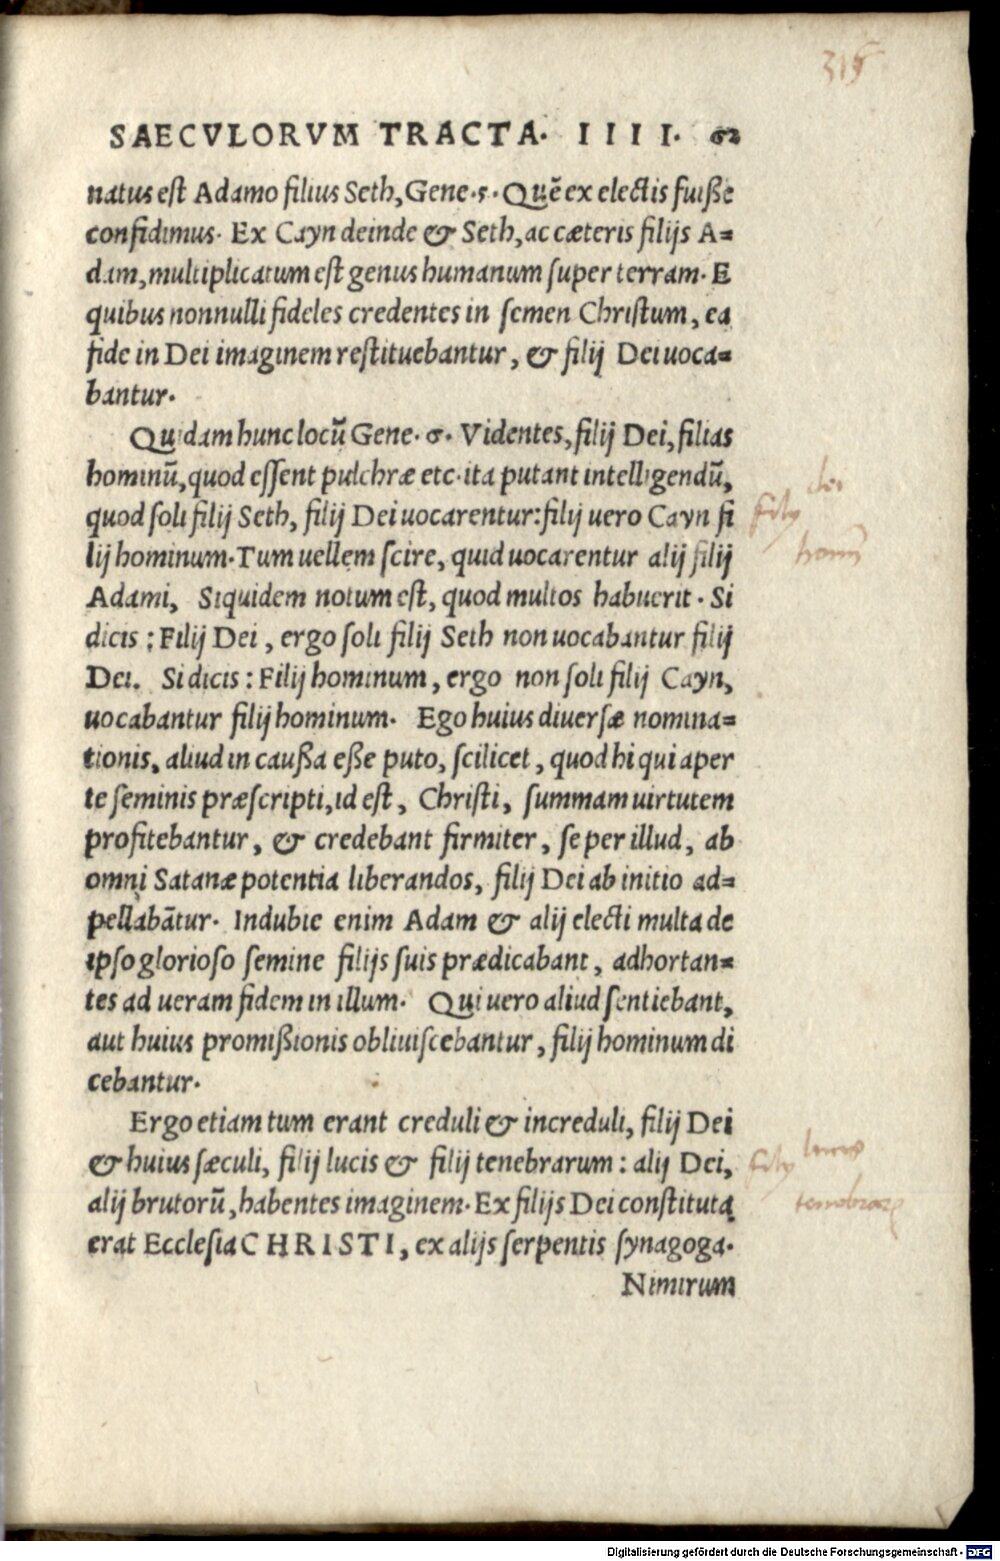 315
SAECVLORVM TRACTA. IIII. 62
natus est Adamo filius Seth, Gene.5. Quẽ ex electis fuiße
confidimus. Ex Cayn deinde & Seth, ac cæteris filijs A=
dam, multiplicatum est genus humanum super terram. E
quibus nonnulli fideles credentes in semen Christum, ea
fide in Dei imaginem restituebantur, & filij Dei uoca=
bantur.
Quidam hunc locũ Gene. 6. Videntes, filij Dei, filias
hominũ, quod essent pulchræ etc. ita putant intelligendũ,
quod soli filij Seth, filij Dei uocarentur: filij uero Cayn fi
lij hominum. Tum uellem scire, quid uocarentur alij filij
Adami, Siquidem notum est, quod multos habuerit. Si
dicis: Filij Dei, ergo soli filij Seth non uocabantur filij
Dei. Si dicis: Filij hominum, ergo non soli filij Cayn,
uocabantur filij hominum. Ego huius diuersæ nomina=
tionis, aliud in caußa eße puto, scilicet, quod hi qui aper
te seminis præscripti, id est, Christi, summam uirtutem
profitebantur, & credebant firmiter, se per illud, ab
omni Satanæ potentia liberandos, filij Dei ab initio ad=
pellabãtur. Indubie enim Adam & alij electi multa de
ipso glorioso semine filijs suis prædicabant, adhortan=
tes ad ueram fidem in illum. Qui uero aliud sentiebant,
aut huius promißionis obliuiscebantur, filij hominum di
cebantur.
Ergo etiam tum erant creduli & increduli, filij Dei
& huius sæculi, filij lucis & filij tenebrarum: alij Dei,
alij brutorũ, habentes imaginem. Ex filijs Dei constituta
erat Ecclesia CHRISTI, ex alijs serpentis synagoga.
Nimirum
dei
filij
homi
filij lucis
Digitalisierung gefördert durch die Deutsche Forschungsgemeinschaft - DFG